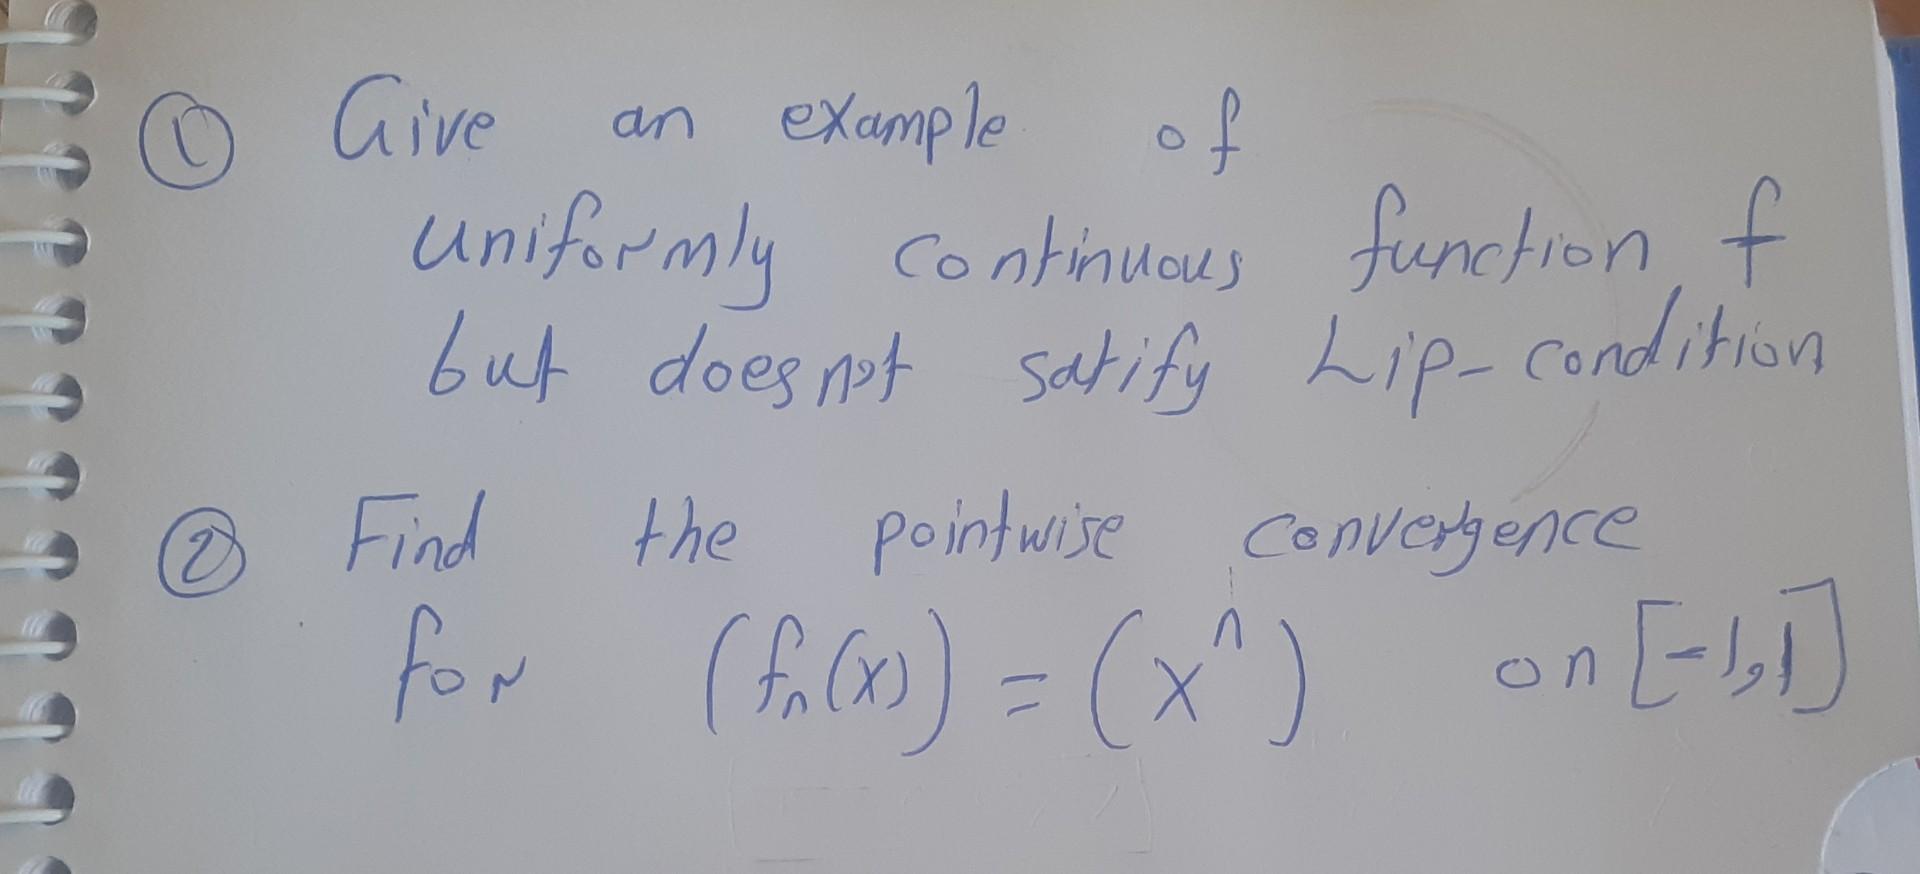 ① Give an example of
uniformly continuous function f
but does not satify Lip-condition
② Find the pointwise convergence
for (fₙ(x)) = (xⁿ) on [-1,1]